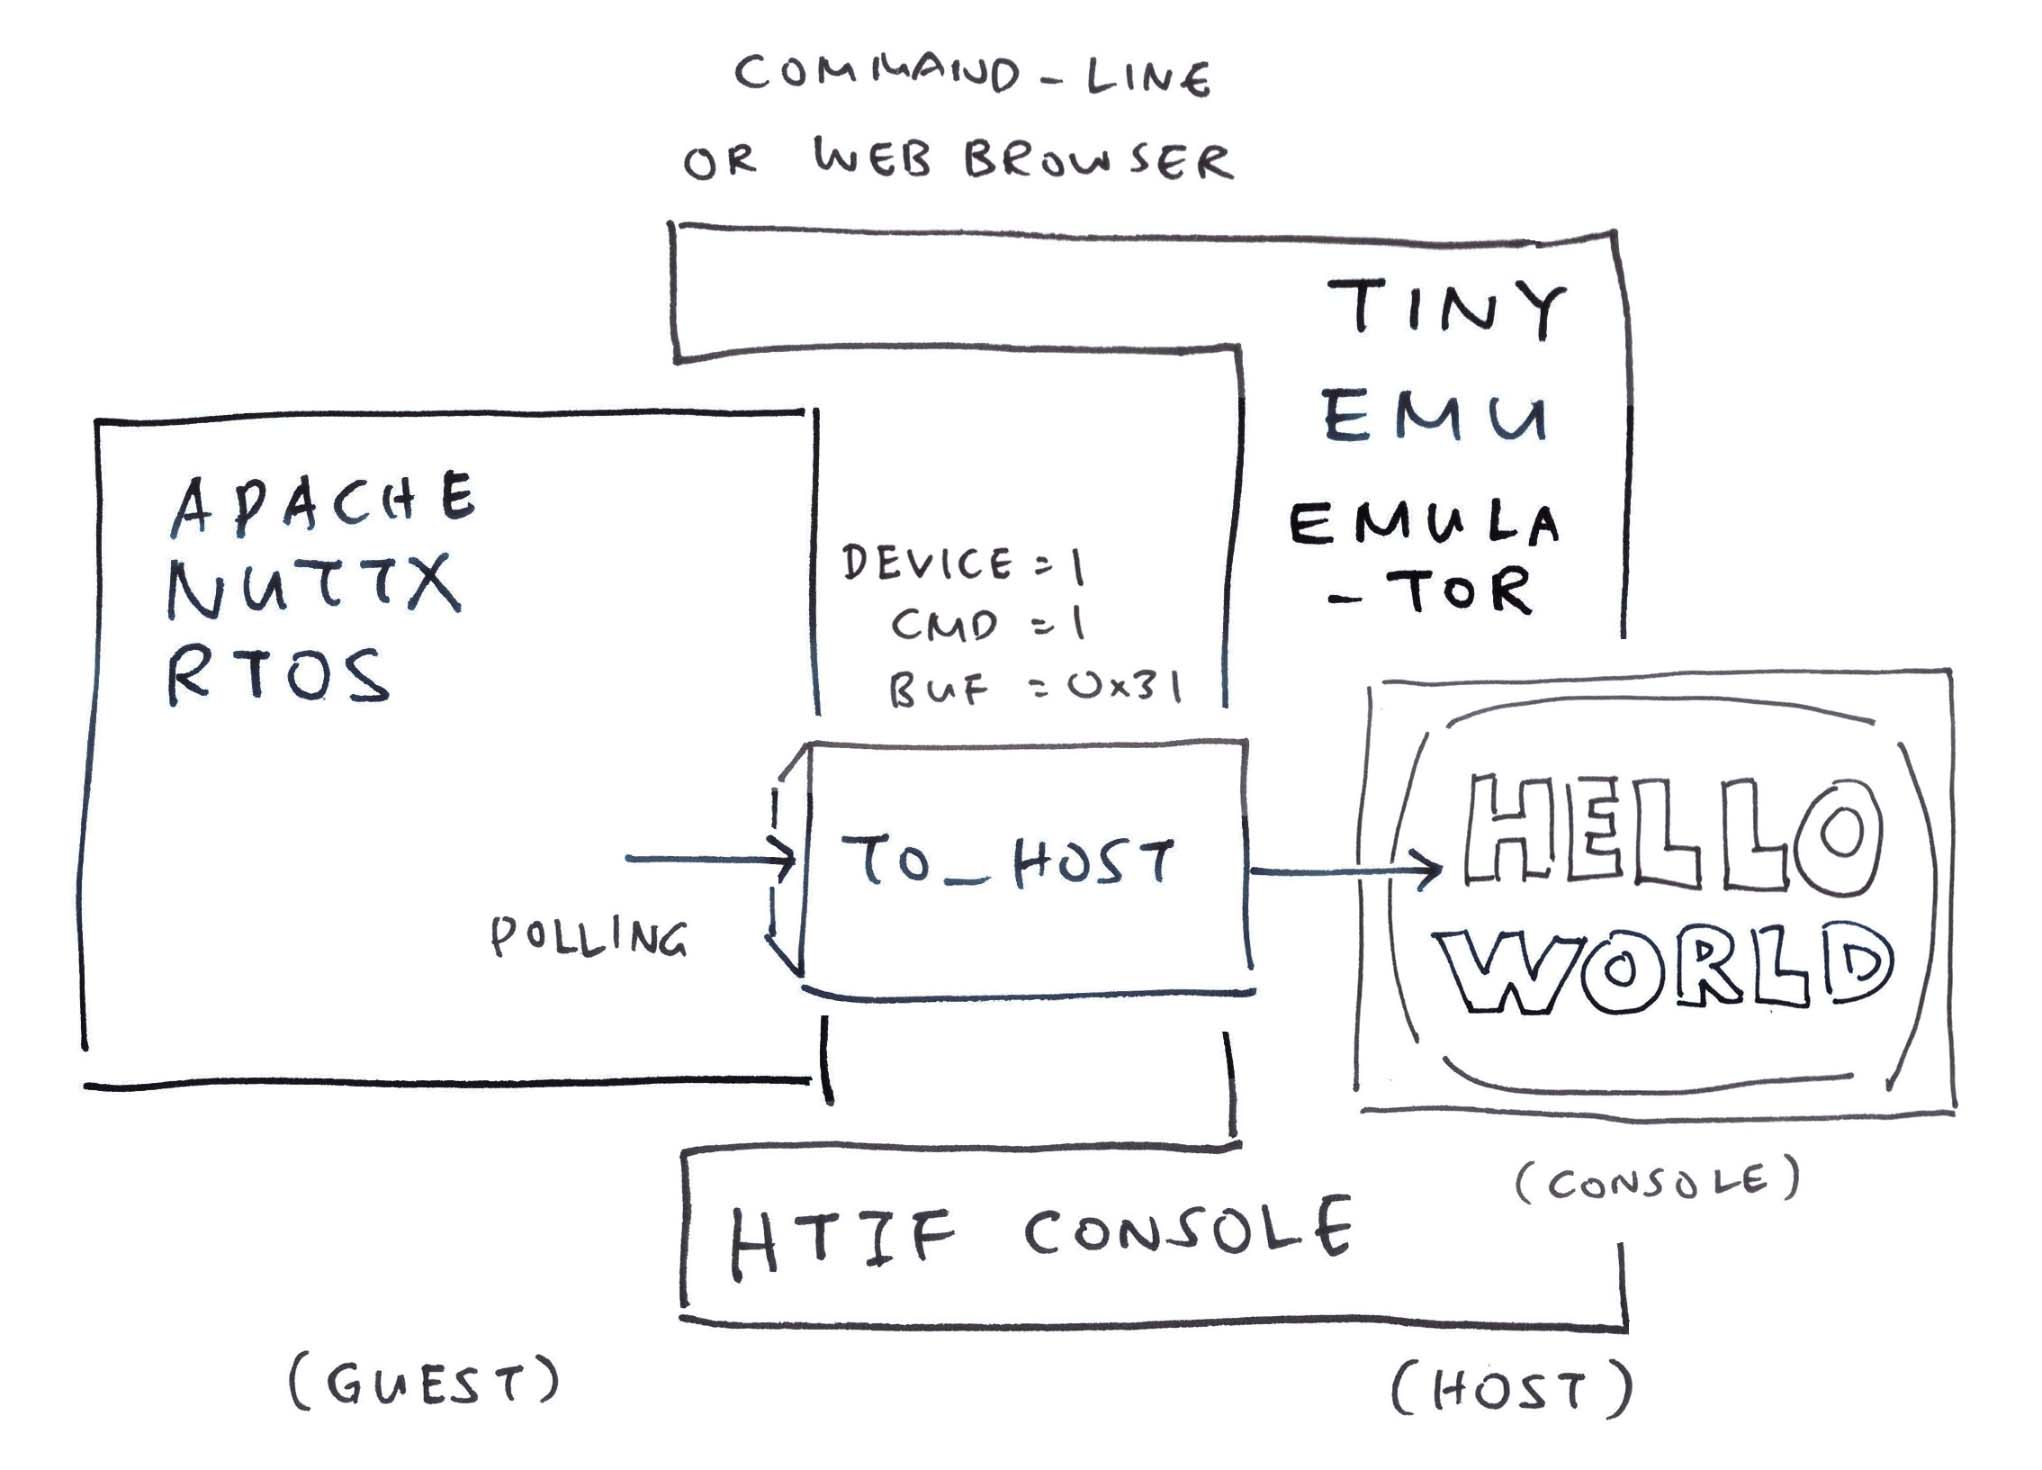 COMMAND-LINE
OR WEB BROWSER
TINY
EMU
EMULA
-TOR
APACHE
NUTTX
RTOS
DEVICE = 1
CMD = 1
BUF = 0x31
TO_HOST
POLLING
HELLO
WORLD
(CONSOLE)
HTIF CONSOLE
(GUEST)
(HOST)